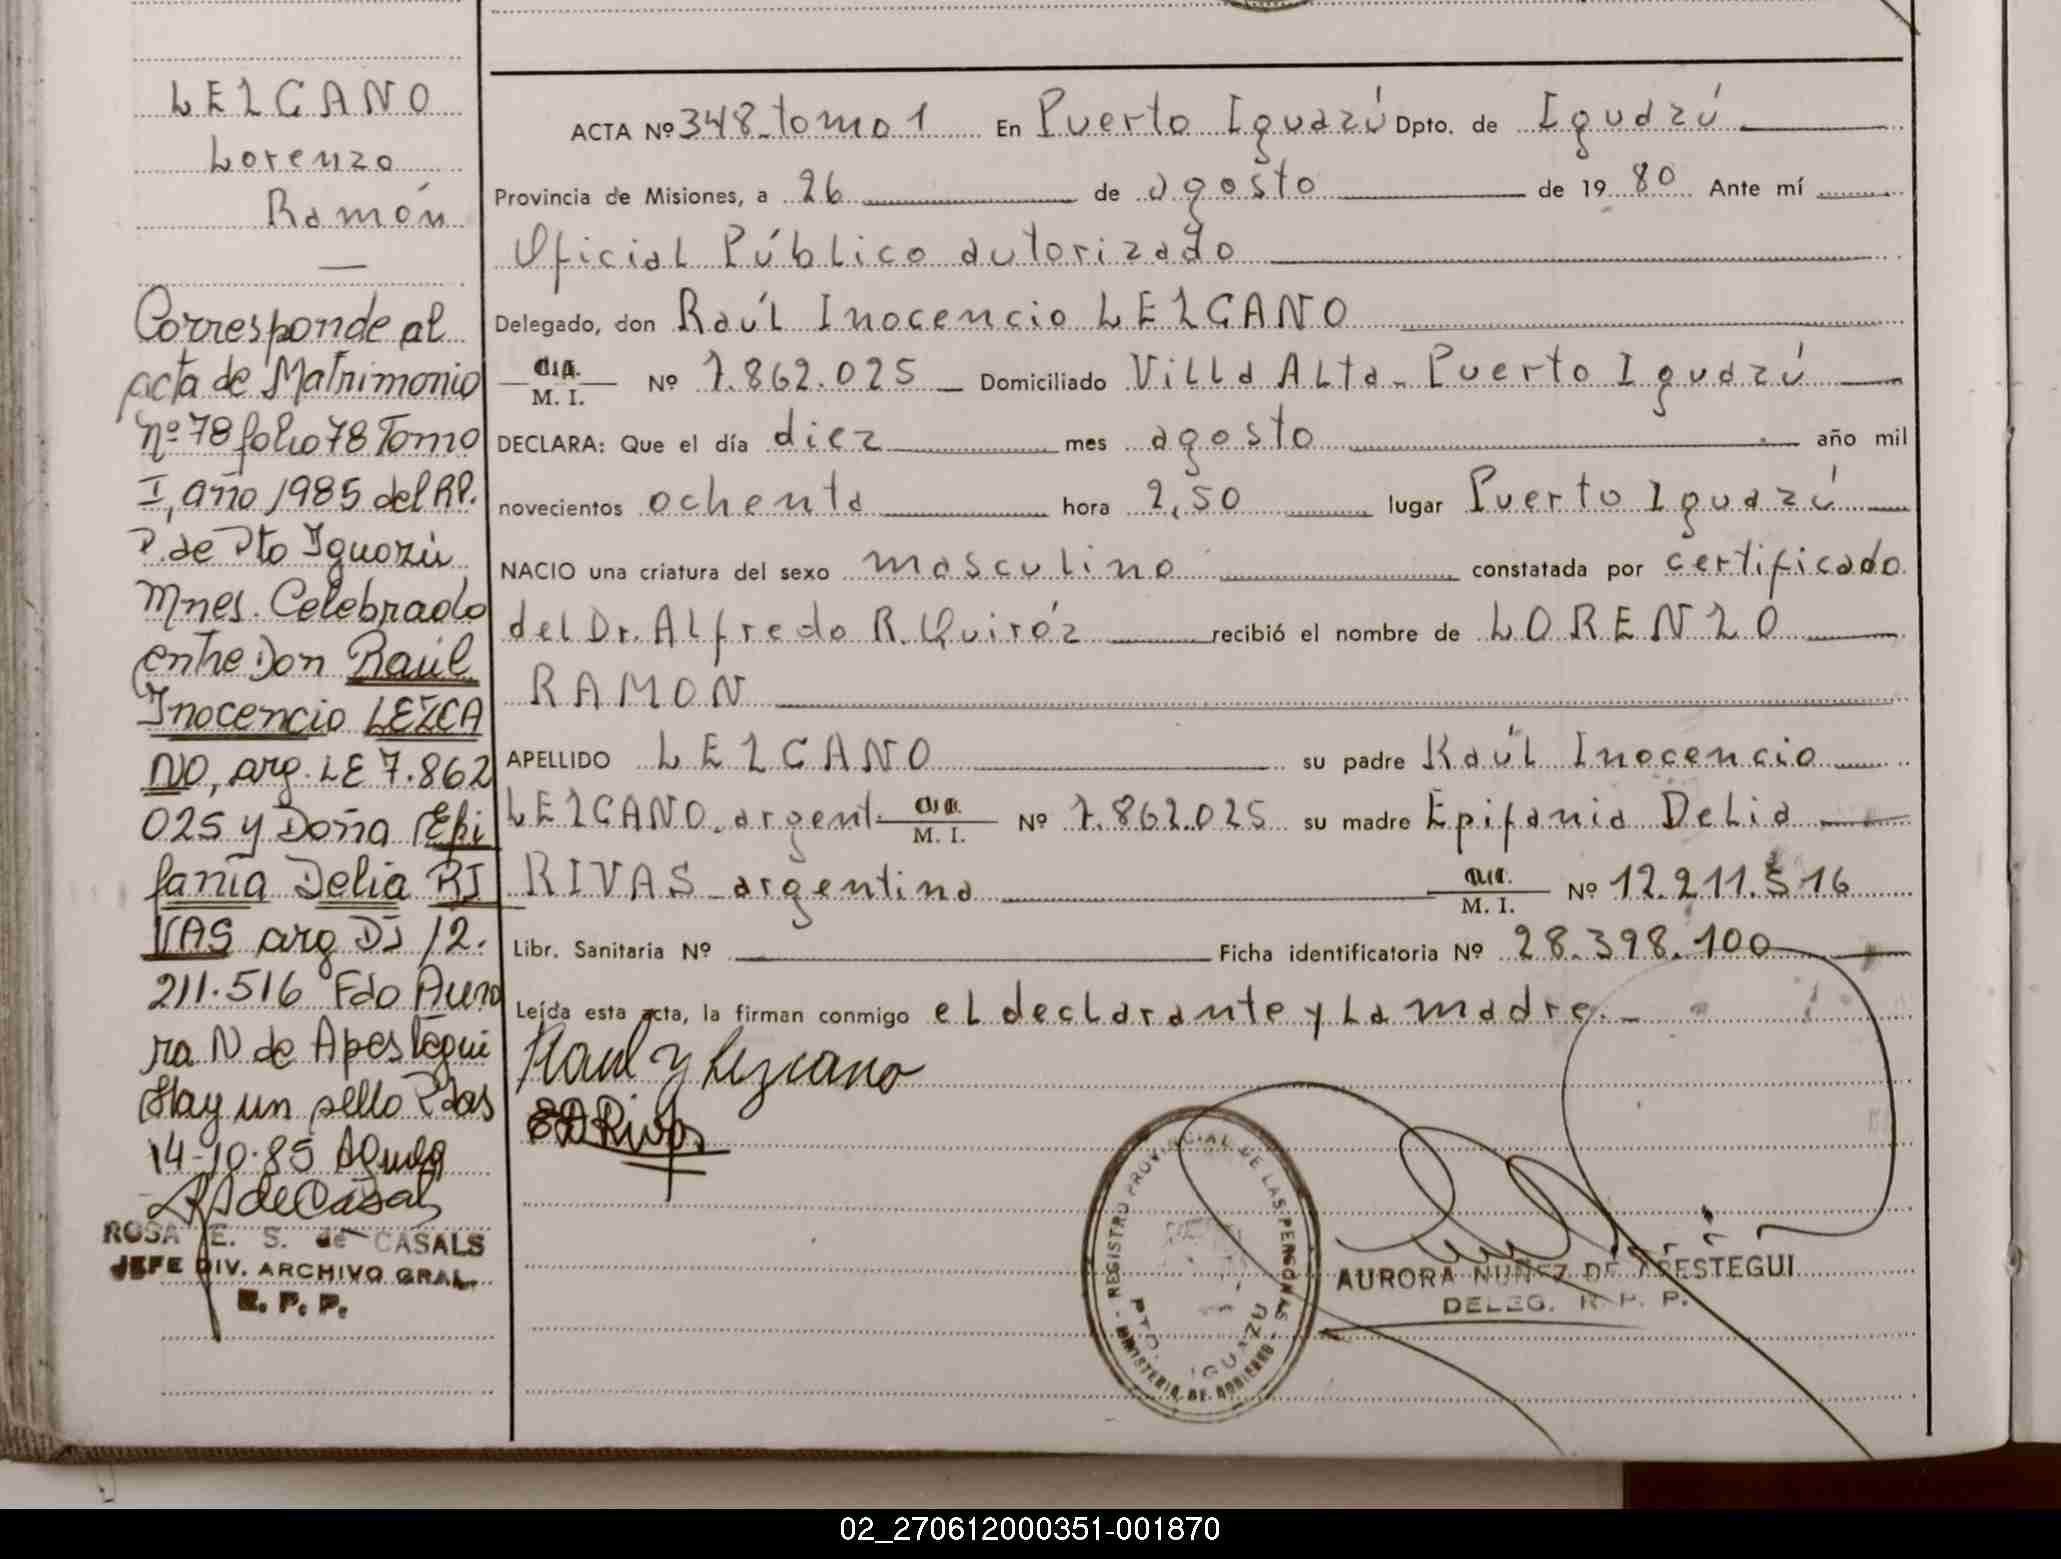 LEZCANO
Lorenzo
Ramón
Corresponde al
acta de Matrimonio
nº 78 folio 78 Tomo
I, año 1985 del RP.
P. de Pto Iguazú
Mnes. Celebrado
entre Don Raúl
Inocencio LEZCA
NO, arg. LE 7.862
025 y Doña Epi
fania Delia RI
VAS arg DI 12.
211.516 Fdo Auro
ra N de Apestegui
Hay un sello Pdas
14-10-85
ROSA E. S. de CASALS
JEFE DIV. ARCHIVO GRAL.
R. P. P.
ACTA Nº 348 tomo 1 En Puerto Iguazú Dpto. de Iguazú
Provincia de Misiones, a 26 de agosto de 1980 Ante mí
Oficial Público autorizado
Delegado, don Raúl Inocencio LEZCANO
M. I. Nº 7.862.025 Domiciliado Villa Alta - Puerto Iguazú
DECLARA: Que el día diez mes agosto año mil
novecientos ochenta hora 2,50 lugar Puerto Iguazú
NACIO una criatura del sexo masculino constatada por certificado
del Dr. Alfredo R. Quiróz recibió el nombre de LORENZO
RAMON
APELLIDO LEZCANO su padre Raúl Inocencio
LEZCANO. argent. M. I. Nº 7.862.025 su madre Epifania Delia
RIVAS argentina M. I. Nº 12.211.516
Libr. Sanitaria Nº Ficha identificatoria Nº 28.398.100
Leída esta acta, la firman conmigo el declarante y La madre.
Raul Y Lezcano
ED Rivas
REGISTRO PROVINCIAL DE LAS PERSONAS
PTO. IGUAZU
MINISTERIO DE GOBIERNO
AURORA NUÑEZ DE APESTEGUI
DELEG. R. P. P.
02_270612000351-001870